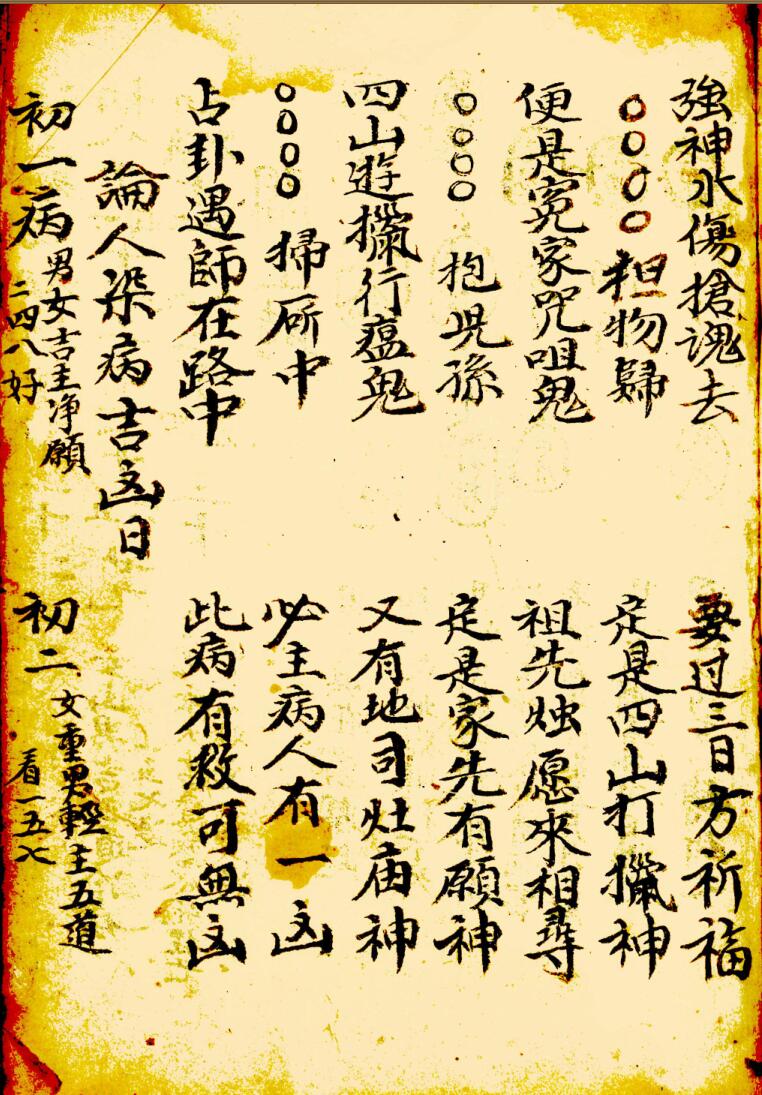 強神水傷搶魂去 要过三日方祈福
○○○○担物歸 定是四山打獵神
便是冤家咒咀鬼 祖先烛愿來相尋
○○○○抱児孫 定是家先有願神
四山遊獵行瘟鬼 又有地司灶庙神
○○○○掃厛中 必主病人有一凶
占卦遇師在路中 此病有救可無凶
論人染病吉凶日
初一病 男女吉主净願 二四八好
初二 女重男輕主五道 看一五七